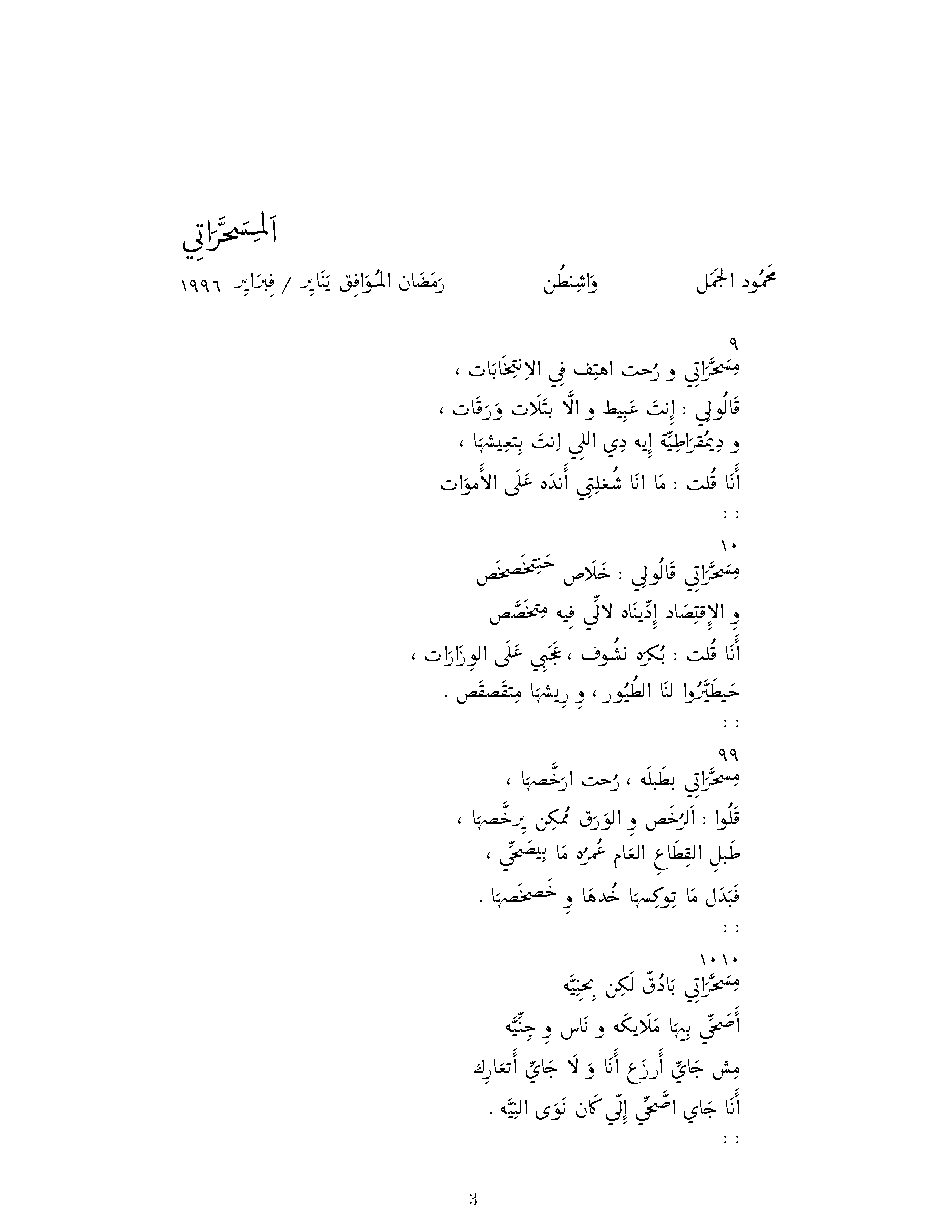 اَلمِسَحَّرَاتِي
مَحَمُود الجَمَل وَاشِنطُن رَمَضَان المُوَافِق يَنَايِر / فِبرَايِر ١٩٩٦
٩
مِسَحَّرَاتِي و رُحت اهتِف فِي الاِنتِخَابَات ،
قَالُولِي : إِنتَ عَبِيط و الَّا بتَلَات وَرَقَات ،
و دِيمُقرَاطِيَّة إِيه دِي اللِي اِنتَ بِتعِيشهَا ،
أَنَا قُلت : مَا انَا شُغلِتِي أَندَه عَلَى الأَموَات
: :
١٠
مِسَحَّرَاتِي قَالُولِي : خَلَاص حَنِتخَصخَص
وِ الإِقتِصَاد إِدِّينَاه لالِّي فِيه مِتخَصَّص
أَنَا قُلت : بُكرَه نشُوف ، عَجَبِي عَلَى الوِزَارَات ،
حَيطَيَّرُوا لنَا الطُيُور ، وِ رِيشهَا مِتقَصقَص .
: :
٩٩
مِسَحَّرَاتِي بطَبلَه ، رُحت ارَخَّصهَا ،
قَلُوا : اَلرُخَص وِ الوَرَق مُمكِن يِرخَّصهَا ،
طَبلِ القِطَاعِ العَام عُمرُه مَا بِيصَحِّي ،
فَبَدَل مَا تِوكِسهَا خُدهَا وِ خَصخَصهَا .
: :
١٠١٠
مِسَحَّرَاتِي بَادُقّ لَكِن بِحنِيَّه
أَصَحِّي بِيهَا مَلَايكَه و نَاس وِ جِنِّيَّه
مِش جَايّ أَرزَع أَنَا وَ لَا جَايّ أَتعَارِك
أَنَا جَاي اصَّحِّي إِلِّي كَان نَوَى النِيَّه .
: :
3